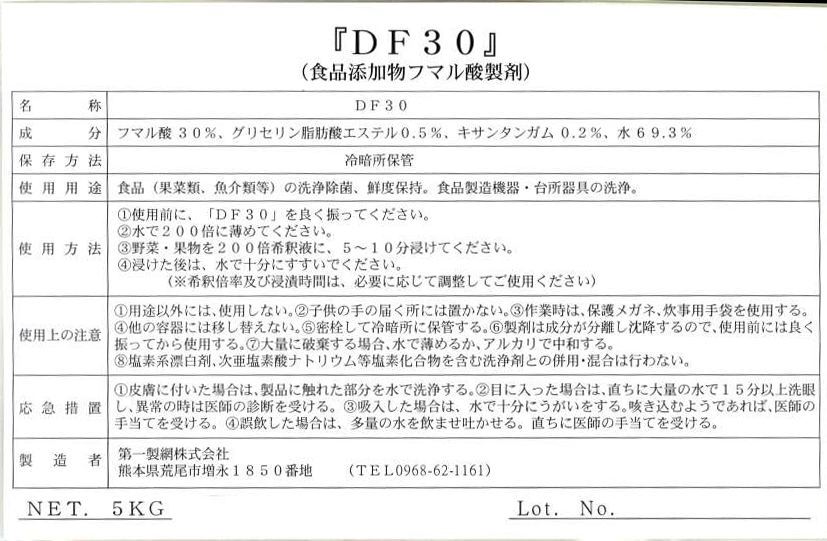 『DF30』
(食品添加物フマル酸製剤)
名称 DF30
成分 フマル酸 30%、グリセリン脂肪酸エステル0.5%、キサンタンガム 0.2%、水 69.3%
保存方法 冷暗所保管
使用用途 食品（果菜類、魚介類等）の洗浄除菌、鮮度保持。食品製造機器・台所器具の洗浄。
使用方法
①使用前に、「DF30」を良く振ってください。
②水で200倍に薄めてください。
③野菜・果物を200倍希釈液に、5～10分浸けてください。
④浸けた後は、水で十分にすすいでください。
（※希釈倍率及び浸漬時間は、必要に応じて調整してご使用ください）
使用上の注意
①用途以外には、使用しない。②子供の手の届く所には置かない。③作業時は、保護メガネ、炊事用手袋を使用する。
④他の容器には移し替えない。⑤密栓して冷暗所に保管する。⑥製剤は成分が分離し沈降するので、使用前には良く
振ってから使用する。⑦大量に破棄する場合、水で薄めるか、アルカリで中和する。
⑧塩素系漂白剤、次亜塩素酸ナトリウム等塩素化合物を含む洗浄剤との併用・混合は行わない。
応急措置
①皮膚に付いた場合は、製品に触れた部分を水で洗浄する。②目に入った場合は、直ちに大量の水で15分以上洗眼
し、異常の時は医師の診断を受ける。③吸入した場合は、水で十分にうがいをする。咳き込むようであれば、医師の
手当てを受ける。④誤飲した場合は、多量の水を飲ませ吐かせる。直ちに医師の手当てを受ける。
製造者
第一製網株式会社
熊本県荒尾市増永1850番地 （TEL0968-62-1161）
NET. 5KG
Lot. No.